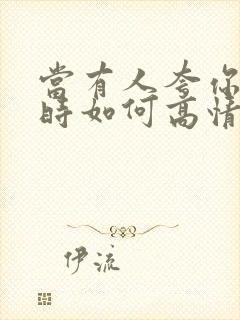 當有人夸你
時如何高情
伊流